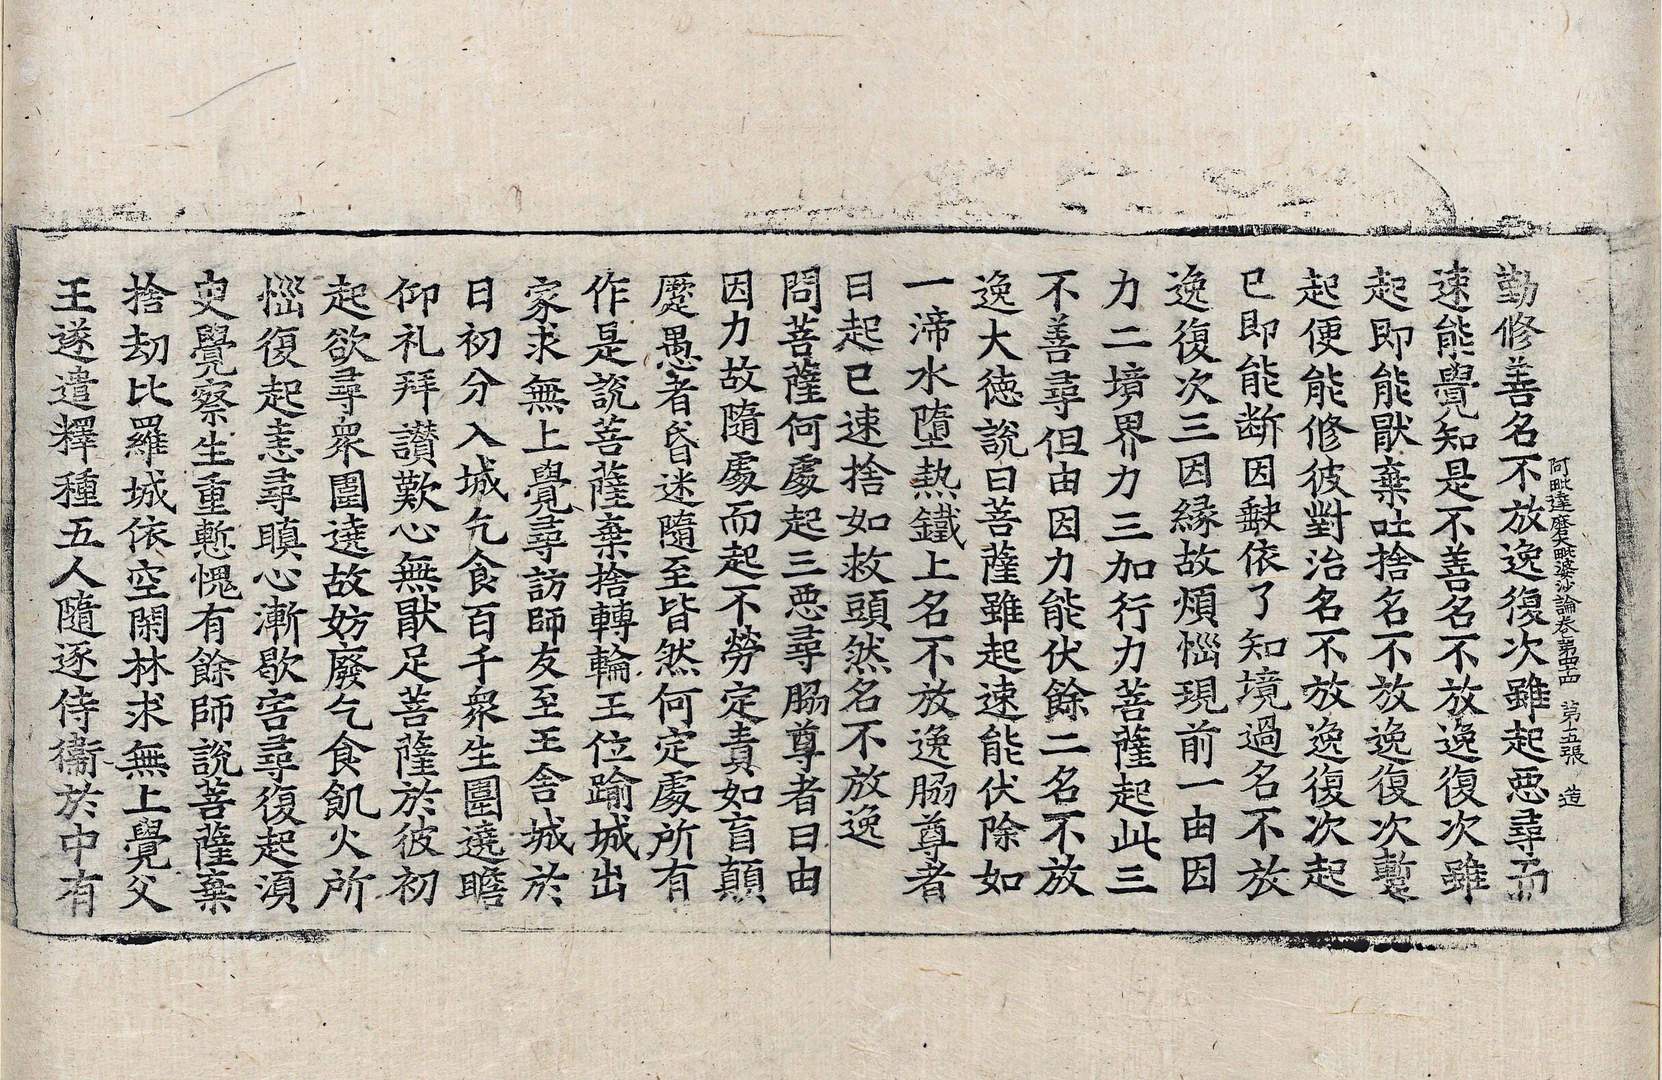 阿毗達磨大毗婆沙論卷第四十四 第十五張 造
勤修善名不放逸復次雖起惡尋而
速能覺知是不善名不放逸復次雖
起即能猒棄吐捨名不放逸復次蹔
起便能修彼對治名不放逸復次起
已即能断因䡄依了知境過名不放
逸復次三因縁故煩惱現前一由因
力二境界力三加行力菩薩起此三
不善尋但由因力能伏餘二名不放
逸大徳說曰菩薩雖起速能伏除如
一渧水墮熱鐵上名不放逸脇尊者
曰起已速捨如救頭然名不放逸
問菩薩何處起三惡尋脇尊者曰由
因力故隨處而起不勞定責如盲顛
蹷愚者昏迷隨至皆然何定處所有
作是說菩薩棄捨轉輪王位踰城出
家求無上覺尋訪師友至王舍城於
日初分入城乞食百千衆生圍遶瞻
仰礼拜讃歎心無猒足菩薩於彼初
起欲尋衆圍遶故妨廢乞食飢火所
惱復起恚尋瞋心漸歇害尋復起須
臾覺察生重慙愧有餘師說菩薩棄
捨劫比羅城依空閑林求無上覺父
王遂遣釋種五人隨逐侍衞於中有